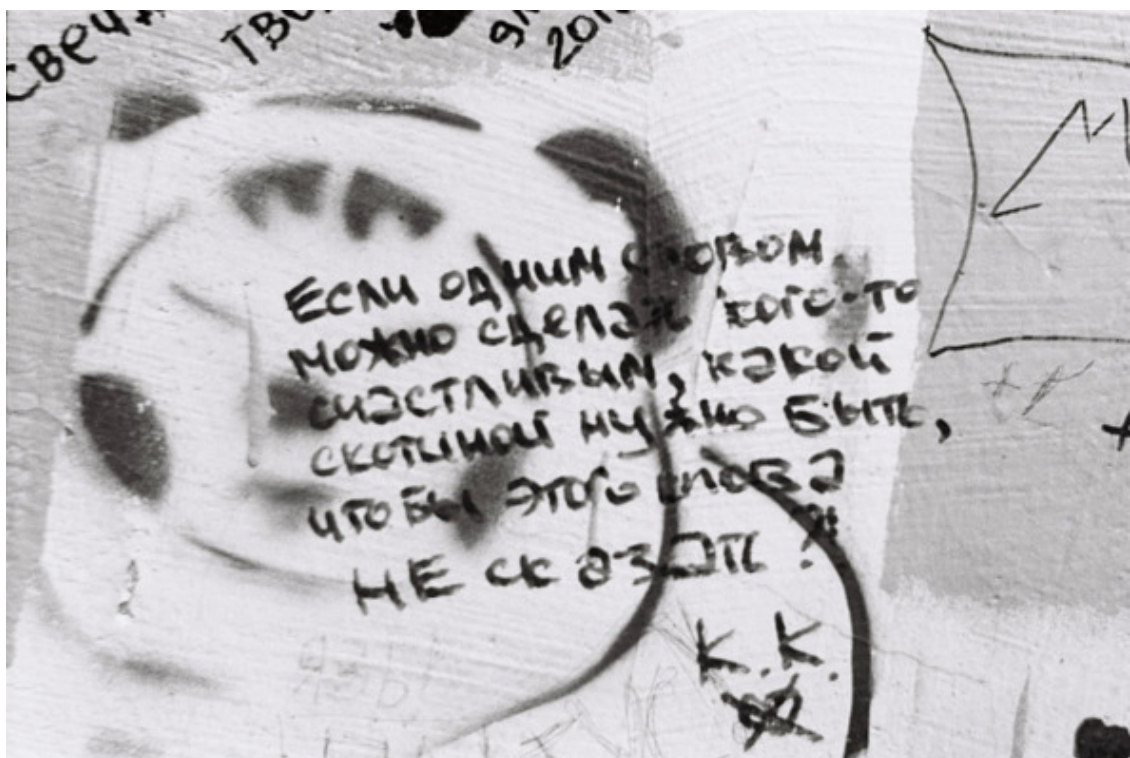 Если одним словом
можно сделать кого-то
счастливым, какой
скотиной нужно быть,
чтобы этого слова
не сказать?!
К.К.